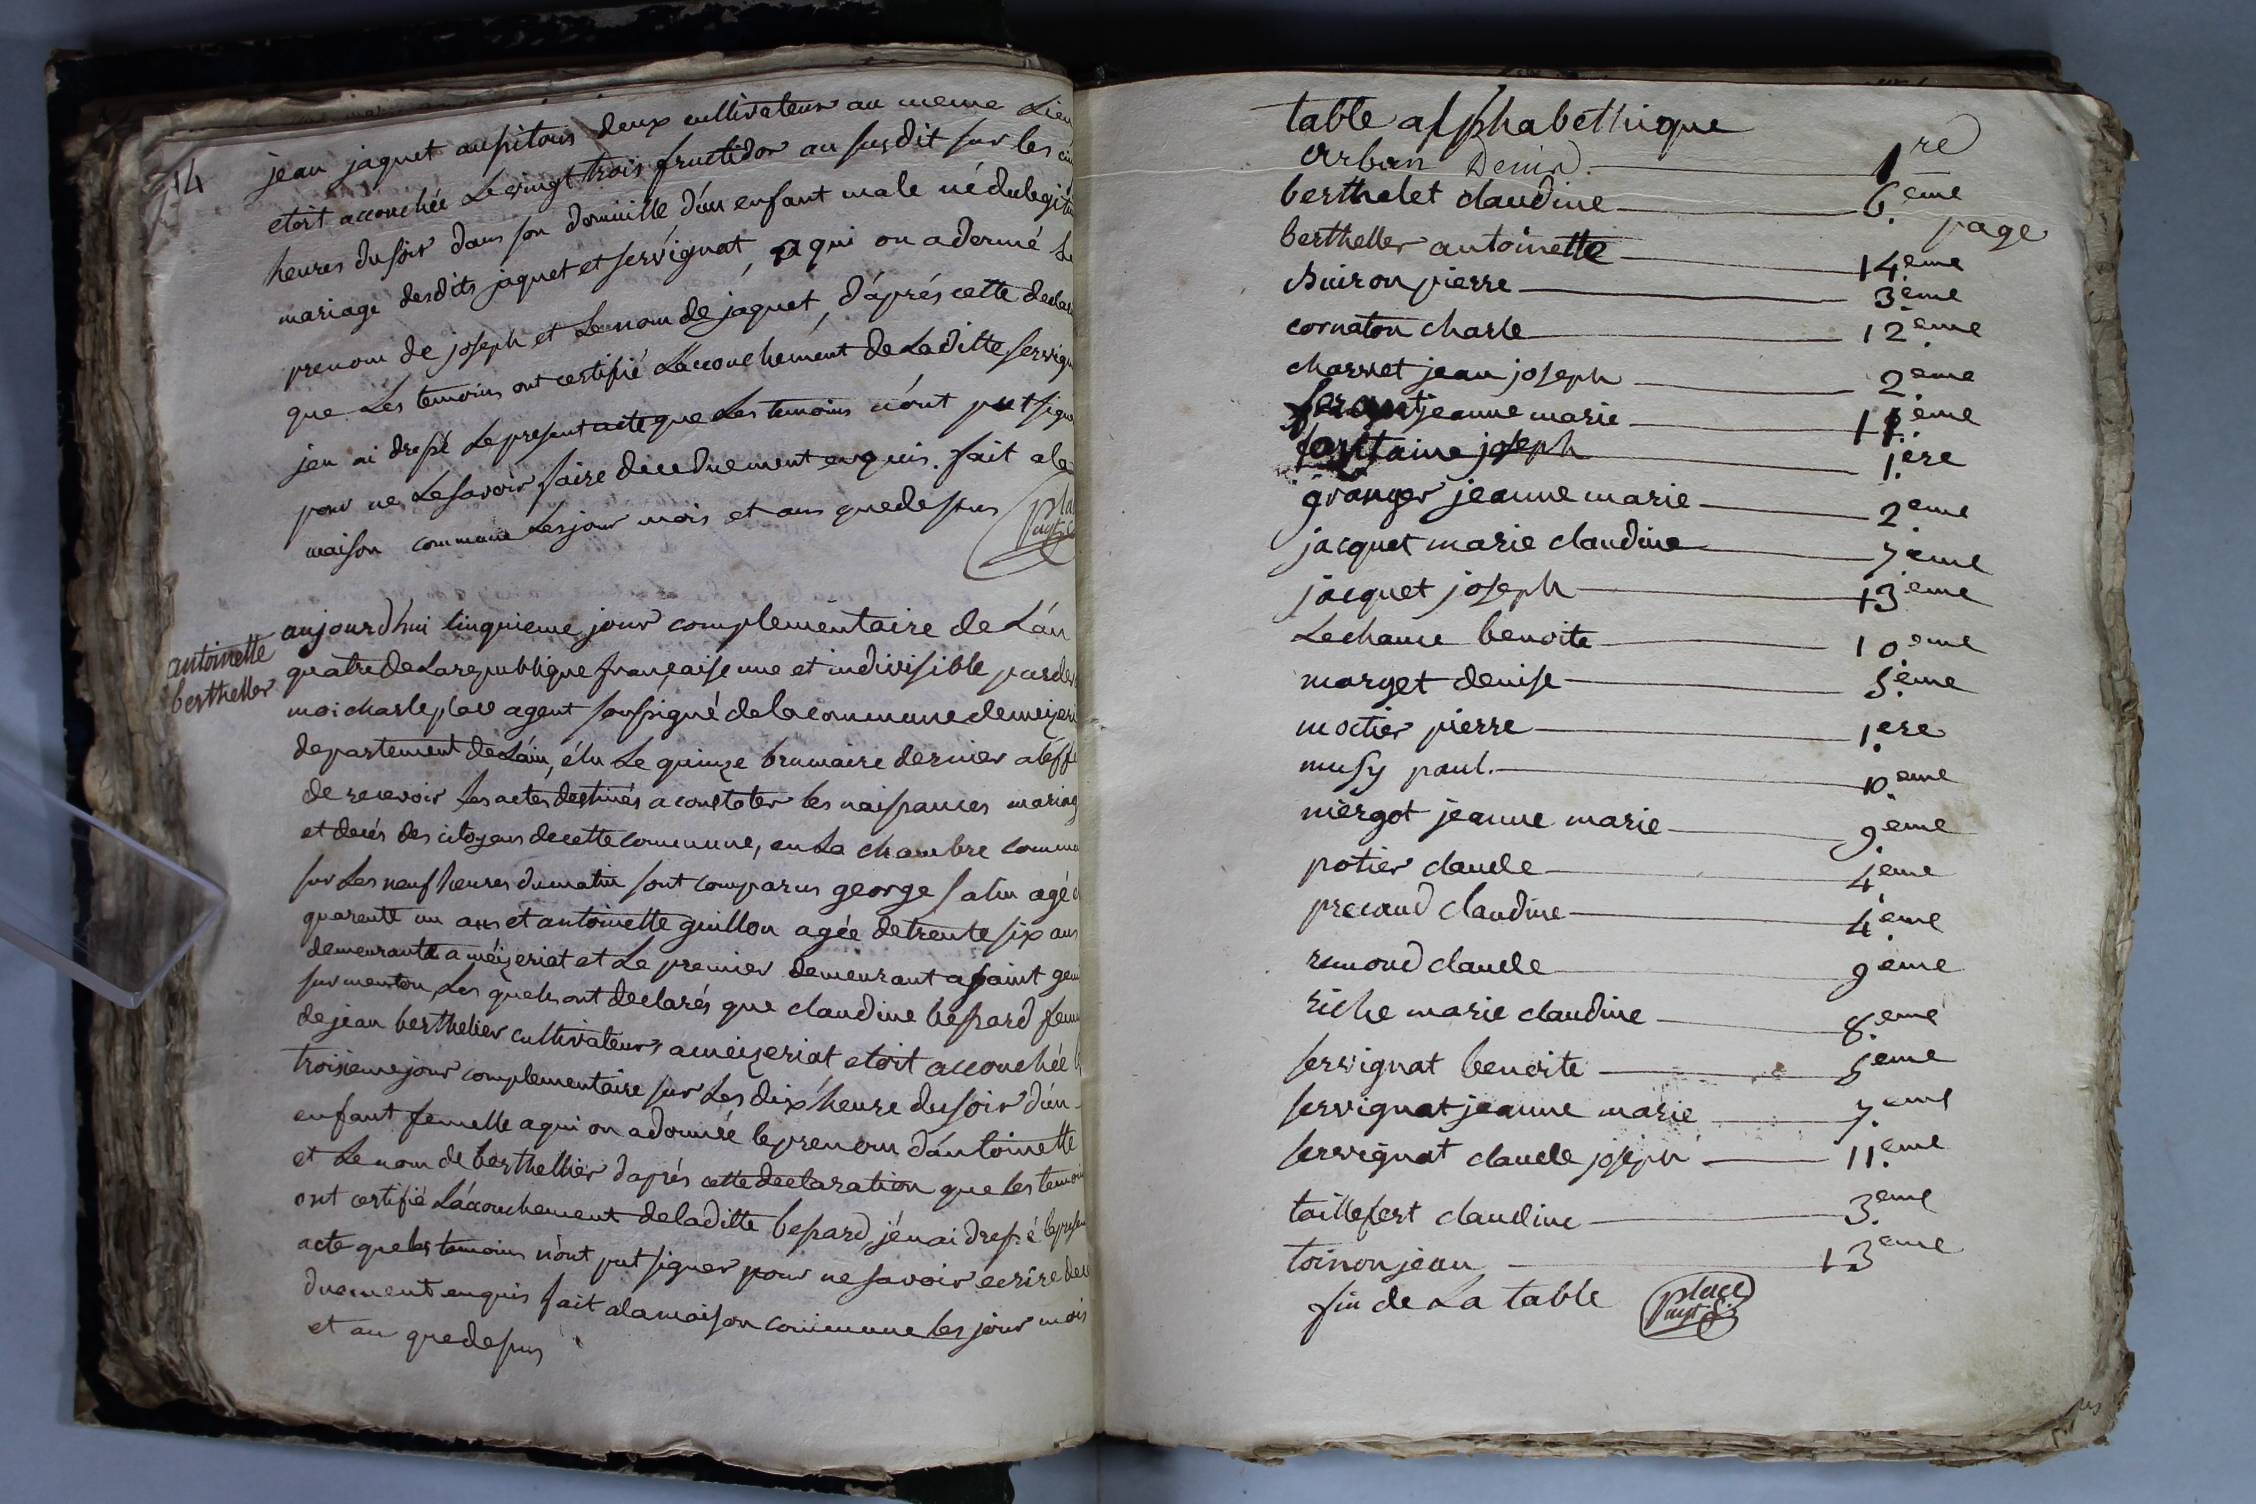 14
jean jaquet aussitous deux cultivateur au meme Lieu
etoit accouchée Le vingt trois fructidor au susdit sur les
heures du soir dans son domicille d'un enfant male né du legiti
mariage desdits jaquet et servignat, a qui on a donné Le
prenom de joseph et Le nom de jaquet, d'aprés cette declara
que Les temoins ont certifié L'accouchement de La ditte servign
jen ai dressé Le present acte que Les temoins n'ont put signe
pour ne Le savoir faire de ce duement enquis. fait a la
maison commune Les jour mois et ans que dessus
antoinette
berthellier
aujourdhui cinquieme jour complementaire de L'an
quatre de La republique française une et indivisible par de
moi charle place agent soussigné de la commune de meizeri
departement de L'ain, élu Le quinze brumaire dernier a l'effe
de recevoir Les actes destinés a constater les naissances mariag
et decés des citoyens de cette commune, en La chambre commu
sur Les neuf heures du matin sont comparus george salin agé d
quarente un ans et antoinette guillon agée de trente six ans
demeurante a méizeriat et Le premier demeurant a saint geni
sur menton, Les quels ont declarés que claudine bessard femm
de jean berthelier cultivateurs a meizeriat etoit accouchée l
troisieme jour complementaire sur Les dix heure du soir d'un
enfant femelle a qui on a donné le prenom d'antoinette
et Le nom de berthellier d'aprés cette declaration que les temoin
ont certifié L'accouchement de la ditte bessard, j'en ai dressé le presen
acte que les temoins n'ont put signer pour ne savoir ecrire de ce
duement enquis fait a la maison commune les jour mois
et an que dessus
table alphabethique
urban Denis. 1re
berthelet claudine 6.eme
page
berthellier antoinette 14.eme
chuiron pierre 3.eme
cornaton charle 12.eme
charvet jean joseph 2.eme
jeanne marie 11.eme
fontaine joseph 1.ere
granger jeanne marie 2.eme
jacquet marie claudine 7.eme
jacquet joseph 13.eme
Lechanue benoite 10.eme
marget denise 5.eme
moctier pierre 1.ere
musy paul. 10.eme
niergot jeanne marie 9.eme
potier claude 4.eme
precaud claudine 4.eme
remond claude 9.eme
riche marie claudine 8.eme
servignat benoite 5.eme
servignat jeanne marie 7.eme
servignat claude joseph 11.eme
taillefert claudine 3.eme
toinon jean 13.eme
fin de La table place